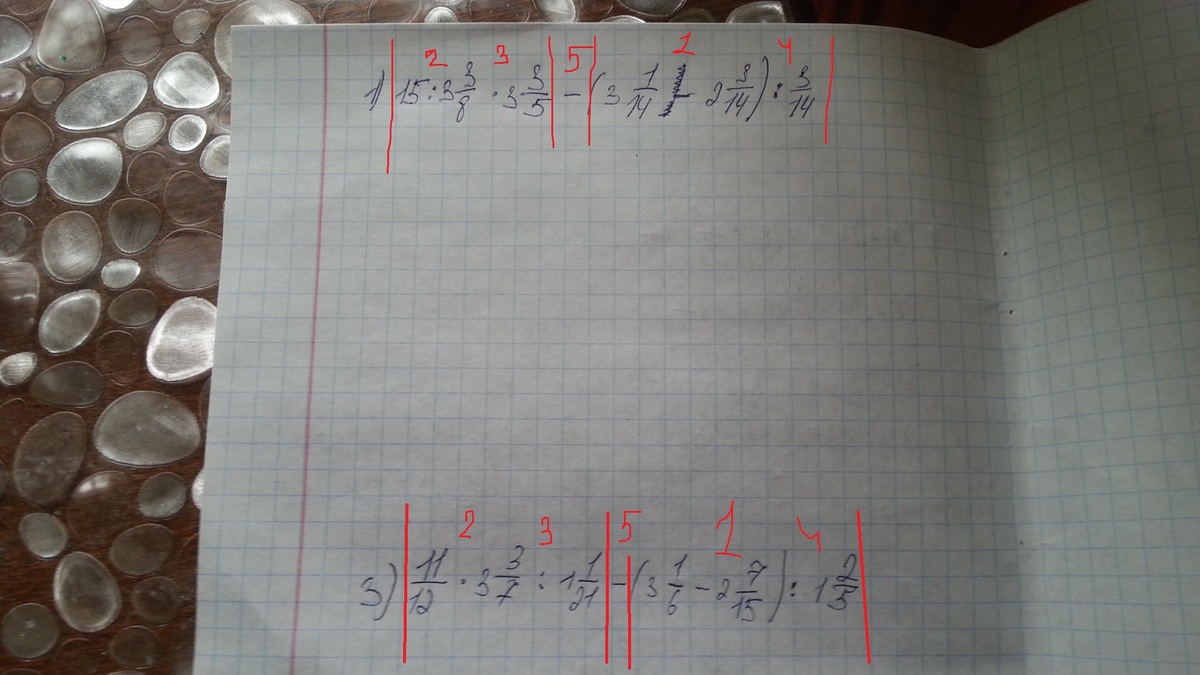 2 3 5 1 4
1) 15 : 3 3/8 · 3 3/5 - (3 1/14 - 2 3/14) : 3/14
2 3 5 1 4
3) 11/12 · 3 3/7 : 1 1/21 - (3 1/6 - 2 7/15) : 1 2/5